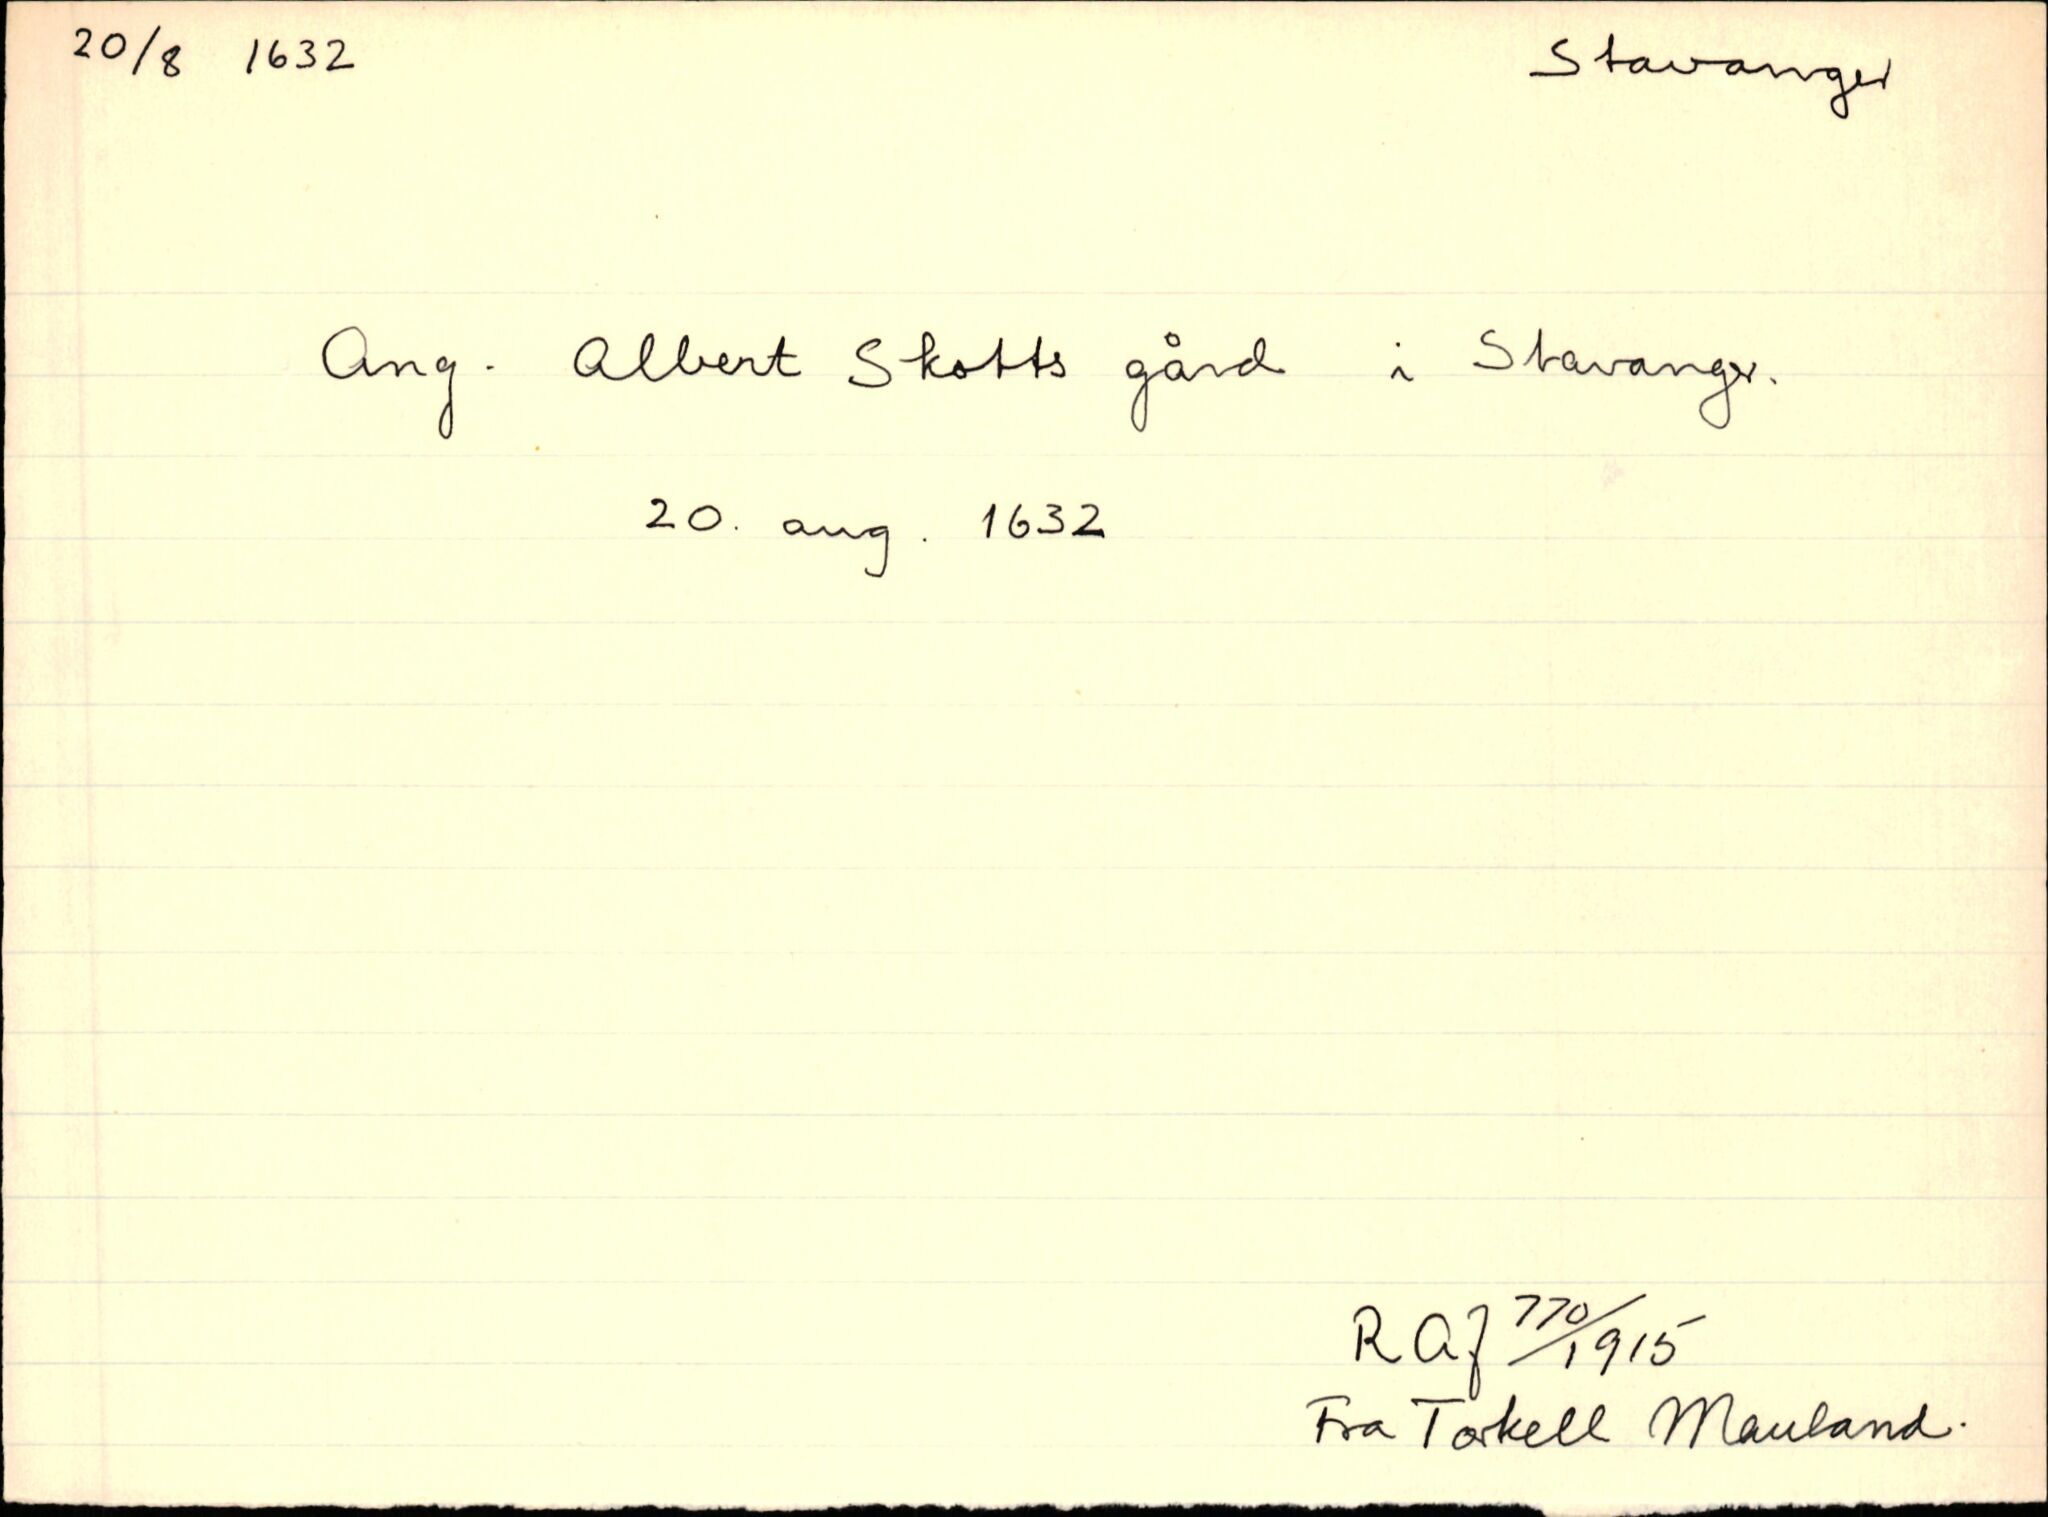 20/8 1632 Stavanger
Ang. Albert Skotts gård i Stavanger.
20. aug. 1632
R A J 770/1915
Fra Torkell Mauland.